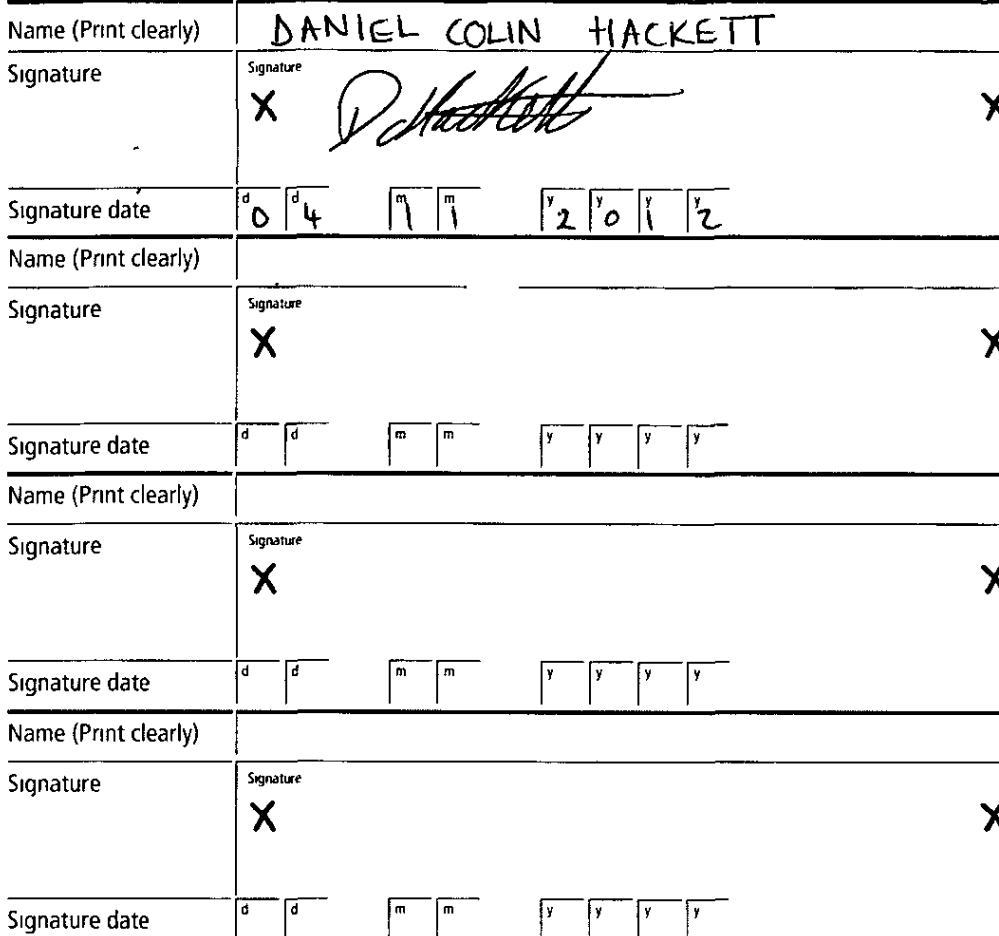 Name (Print clearly) DANIEL COLIN HACKETT
Signature Signature
X DcHackett X
Signature date d0 d4 m1 m1 y2 y0 y1 y2
Name (Print clearly)
Signature Signature
X X
Signature date d d m m y y y y
Name (Print clearly)
Signature Signature
X X
Signature date d d m m y y y y
Name (Print clearly)
Signature Signature
X X
Signature date d d m m y y y y